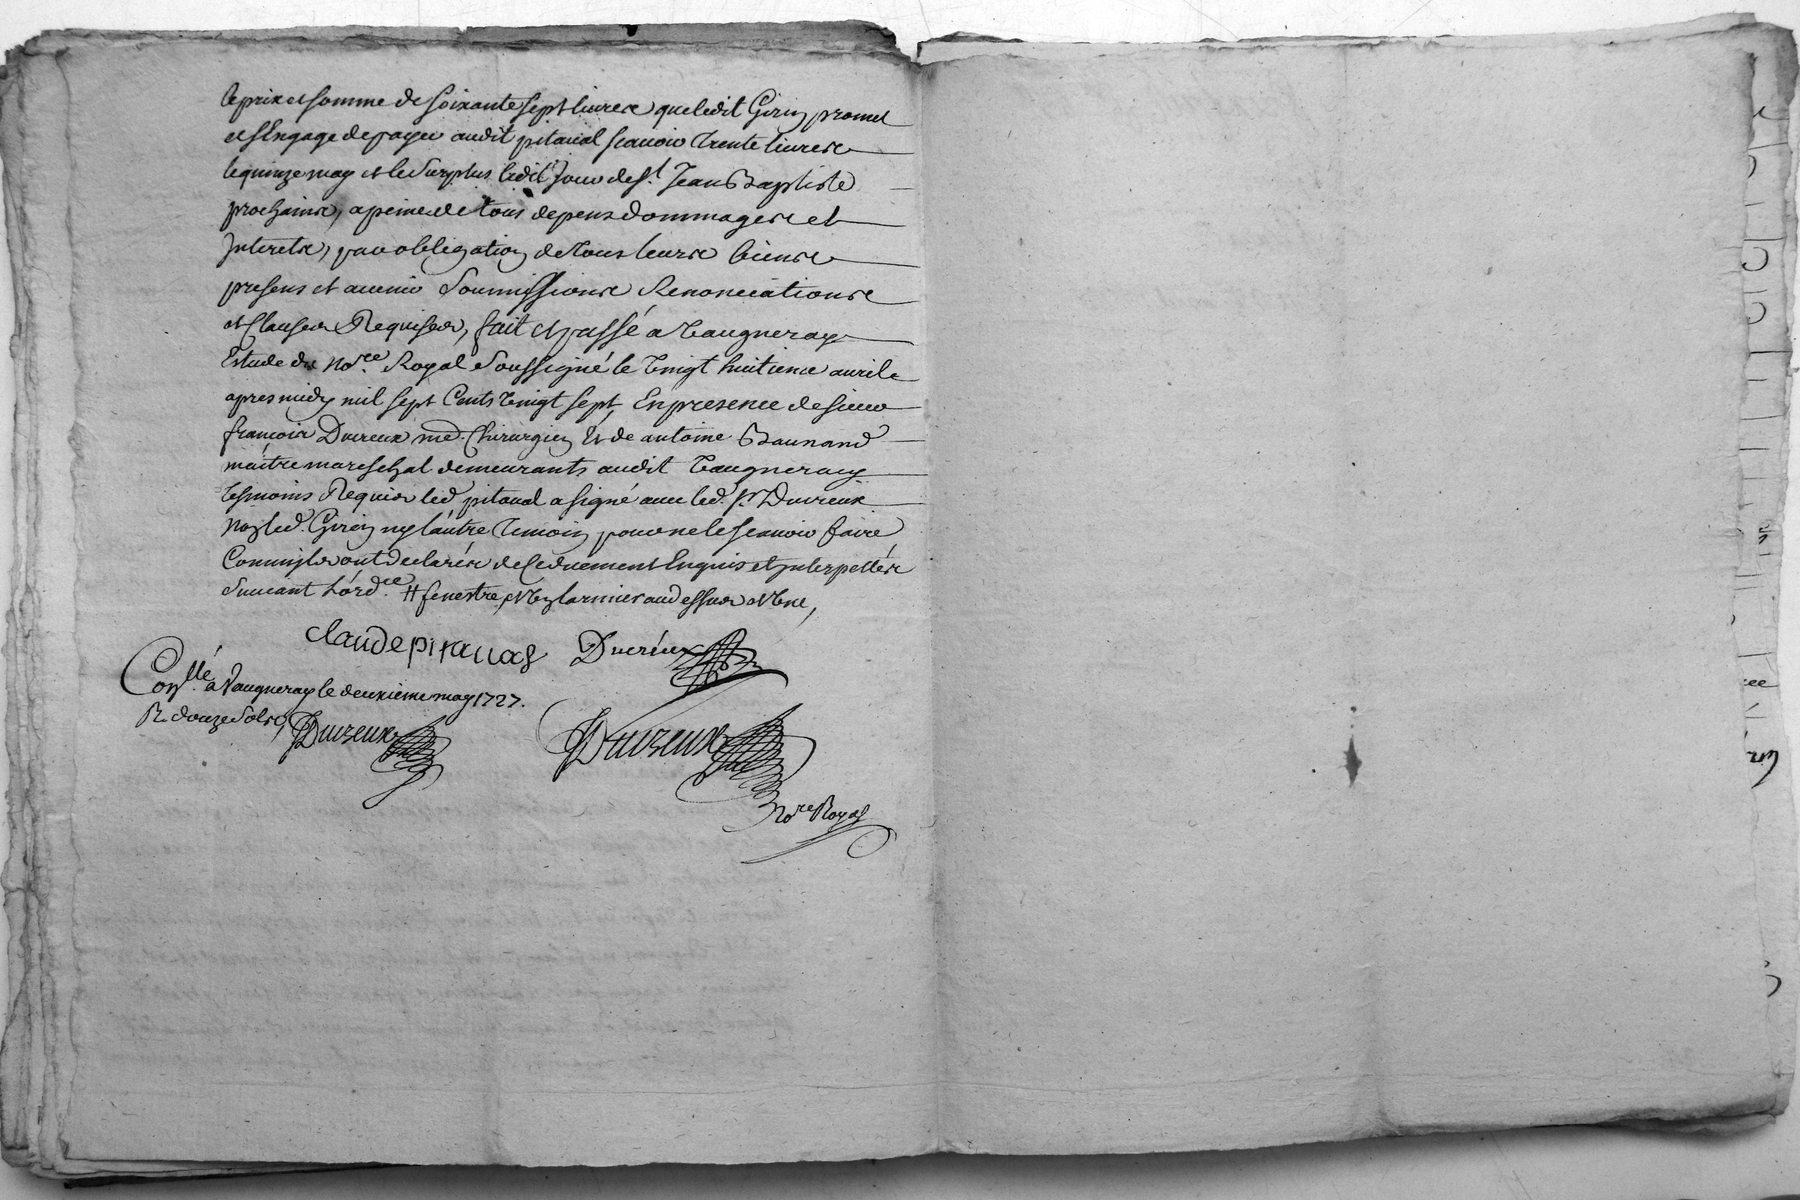 le prix et somme de soixante sept livres que ledit Girin promet
et s'Engage de payer audit pitaval scavoir Trente livres
le quinze may et le Surplus ledit Jour de St. Jean Baptiste
prochains, a peine de tous depens dommages et
Interets, par obligation de tous leurs biens
presens et avenir Soumissions Renonciations
et Clauses Requises, fait et passé a Vaugneray
Estude du Nore. Royal Soussigné le Vingt huitieme avril
apres midy mil sept Cents Vingt sept, En presence de sieur
françois Ducreux me. Chirurgien Et de antoine Baunand
maitre mareschal demeurants audit Vaugneray
Tesmoins Requis led pitaval a signé avec led. Sr. Ducreux
Non led. Girin ny l'autre Temoin pour ne le scavoir faire
Comm'ils ont declarés de Ce duement Enquis et Interpellés
Suivant L'ordce. # fenestre, et Un larmier au dessus et Une,
Claude pitaval Ducreux
Conllé. a Vaugneray le deuxieme may 1727.
R. douze Sols Ducreux Ducreux
Nore Royal